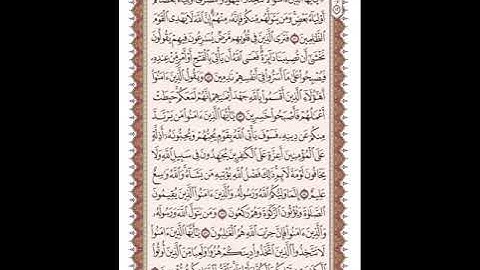 أَوْلِيَآءُ بَعْضٍ وَمَن يَتَوَلَّهُم مِّنكُمْ فَإِنَّهُۥ مِنْهُمْ إِنَّ ٱللَّهَ لَا يَهْدِى ٱلْقَوْمَ
ٱلظَّٰلِمِينَ ۝ فَتَرَى ٱلَّذِينَ فِى قُلُوبِهِم مَّرَضٌ يُسَٰرِعُونَ فِيهِمْ يَقُولُونَ
نَخْشَىٰٓ أَن تُصِيبَنَا دَآئِرَةٌ فَعَسَى ٱللَّهُ أَن يَأْتِىَ بِٱلْفَتْحِ أَوْ أَمْرٍ مِّنْ عِندِهِۦ
فَيُصْبِحُوا۟ عَلَىٰ مَآ أَسَرُّوا۟ فِىٓ أَنفُسِهِمْ نَٰدِمِينَ ۝ وَيَقُولُ ٱلَّذِينَ ءَامَنُوٓا۟
أَهَٰٓؤُلَآءِ ٱلَّذِينَ أَقْسَمُوا۟ بِٱللَّهِ جَهْدَ أَيْمَٰنِهِمْ إِنَّهُمْ لَمَعَكُمْ حَبِطَتْ
أَعْمَٰلُهُمْ فَأَصْبَحُوا۟ خَٰسِرِينَ ۝ يَٰٓأَيُّهَا ٱلَّذِينَ ءَامَنُوا۟ مَن يَرْتَدَّ
مِنكُمْ عَن دِينِهِۦ فَسَوْفَ يَأْتِى ٱللَّهُ بِقَوْمٍ يُحِبُّهُمْ وَيُحِبُّونَهُۥٓ أَذِلَّةٍ
عَلَى ٱلْمُؤْمِنِينَ أَعِزَّةٍ عَلَى ٱلْكَٰفِرِينَ يُجَٰهِدُونَ فِى سَبِيلِ ٱللَّهِ وَلَا
يَخَافُونَ لَوْمَةَ لَآئِمٍ ذَٰلِكَ فَضْلُ ٱللَّهِ يُؤْتِيهِ مَن يَشَآءُ وَٱللَّهُ وَٰسِعٌ
عَلِيمٌ ۝ إِنَّمَا وَلِيُّكُمُ ٱللَّهُ وَرَسُولُهُۥ وَٱلَّذِينَ ءَامَنُوا۟ ٱلَّذِينَ يُقِيمُونَ
ٱلصَّلَوٰةَ وَيُؤْتُونَ ٱلزَّكَوٰةَ وَهُمْ رَٰكِعُونَ ۝ وَمَن يَتَوَلَّ ٱللَّهَ وَرَسُولَهُۥ
وَٱلَّذِينَ ءَامَنُوا۟ فَإِنَّ حِزْبَ ٱللَّهِ هُمُ ٱلْغَٰلِبُونَ ۝ يَٰٓأَيُّهَا ٱلَّذِينَ ءَامَنُوا۟
لَا تَتَّخِذُوا۟ ٱلَّذِينَ ٱتَّخَذُوا۟ دِينَكُمْ هُزُوًا وَلَعِبًا مِّنَ ٱلَّذِينَ أُوتُوا۟